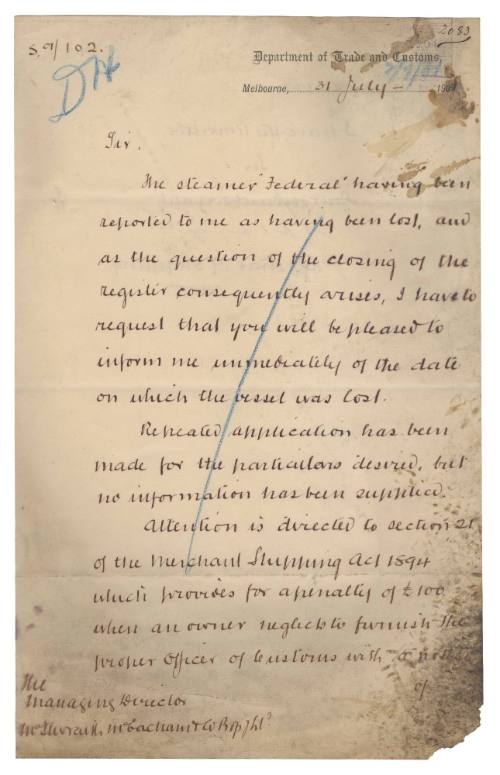 2083
S. 9/102.
Department of Trade and Customs,
Melbourne, 31 July 190
Sir.
The steamer "Federal" having been
reported to me as having been lost, and
as the question of the closing of the
register consequently arises, I have to
request that you will be pleased to
inform me immediately of the date
on which the vessel was lost.
Repeated application has been
made for the particulars desired, but
no information has been supplied.
Attention is directed to section 21
of the Merchant Shipping Act 1894
which provides for a penalty of £100
when an owner neglects to furnish the
proper Officer of Customs with a notice
of
The
Managing Director
McEacharn & Co Pty Ltd